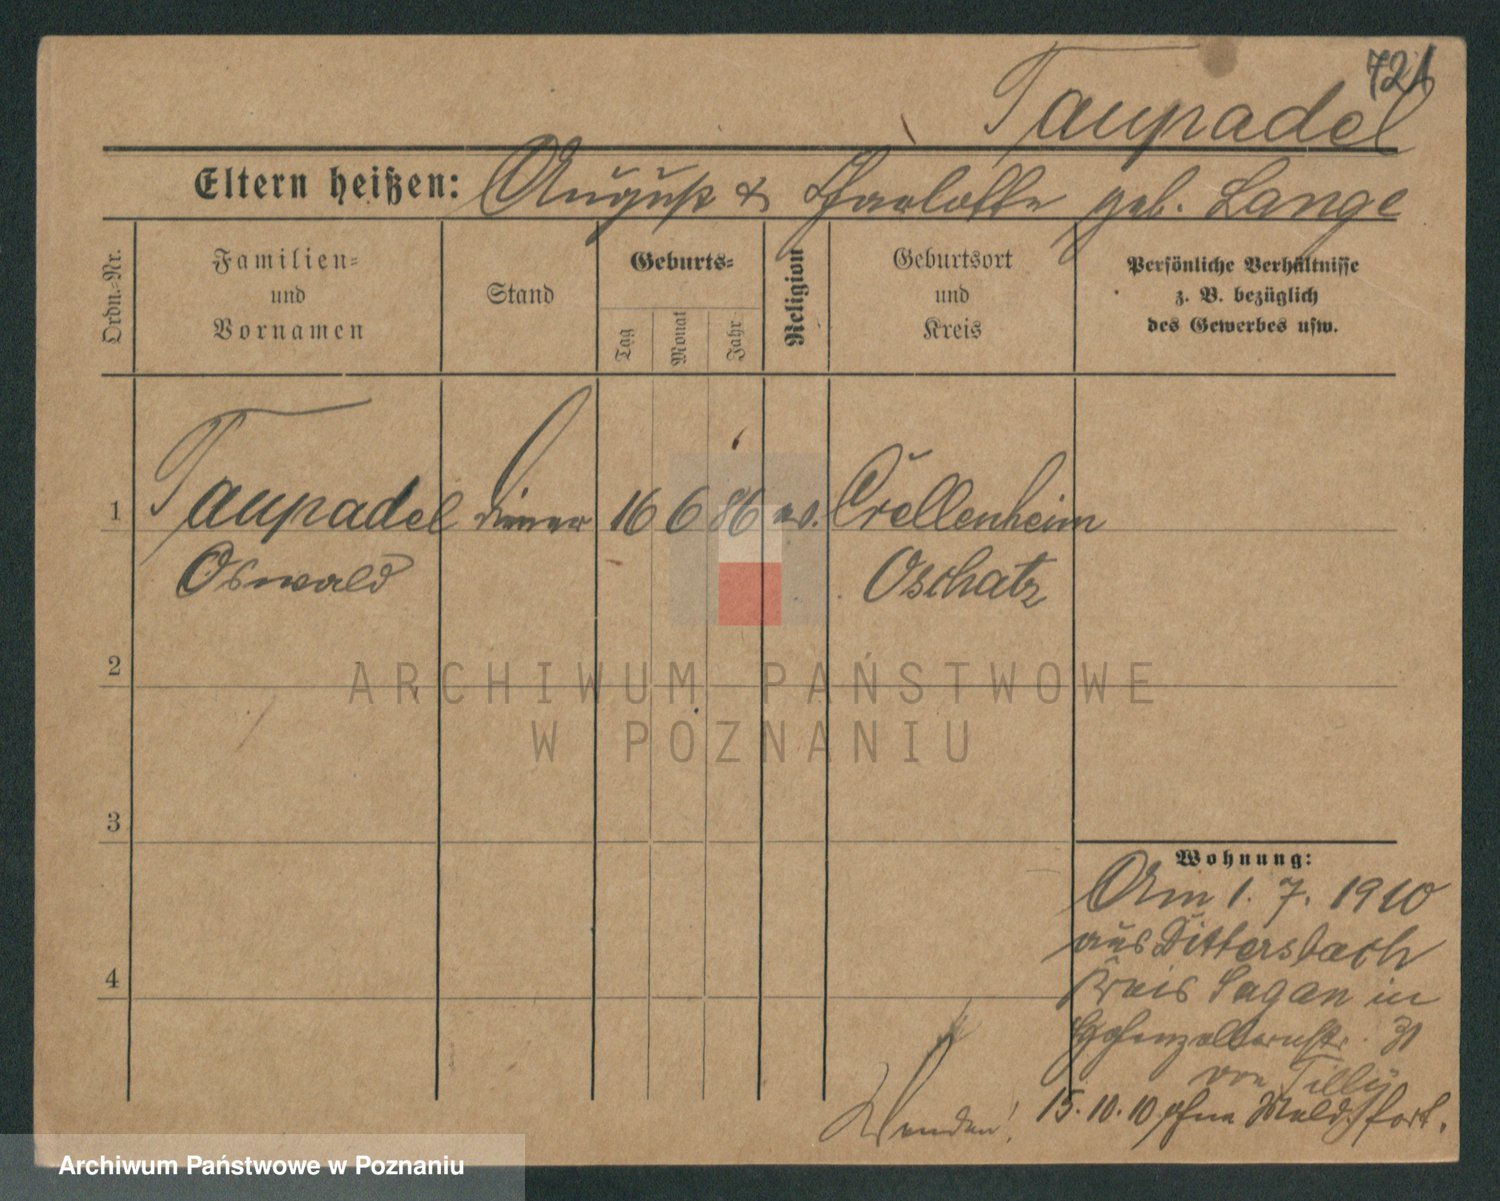 721
Taupadel
Eltern heißen: August & Charlotte geb. Lange
Ordn.-Nr.
Familien-
und
Vornamen
Stand
Geburts-
Tag
Monat
Jahr
Religion
Geburtsort
und
Kreis
Persönliche Verhältnisse
z. B. bezüglich
des Gewerbes usw.
1 Taupadel Diener 16 6 86 ev. Crellenheim
Oswald Oschatz
2
ARCHIWUM PAŃSTWOWE
W POZNANIU
3
Wohnung:
Am 1. 7. 1910
aus Dittersbach
4
Kreis Sagan in
Hohenzollernstr. 31
von Tilly
Wenden! 15.10.10 ohne Meld. fort.
Archiwum Państwowe w Poznaniu